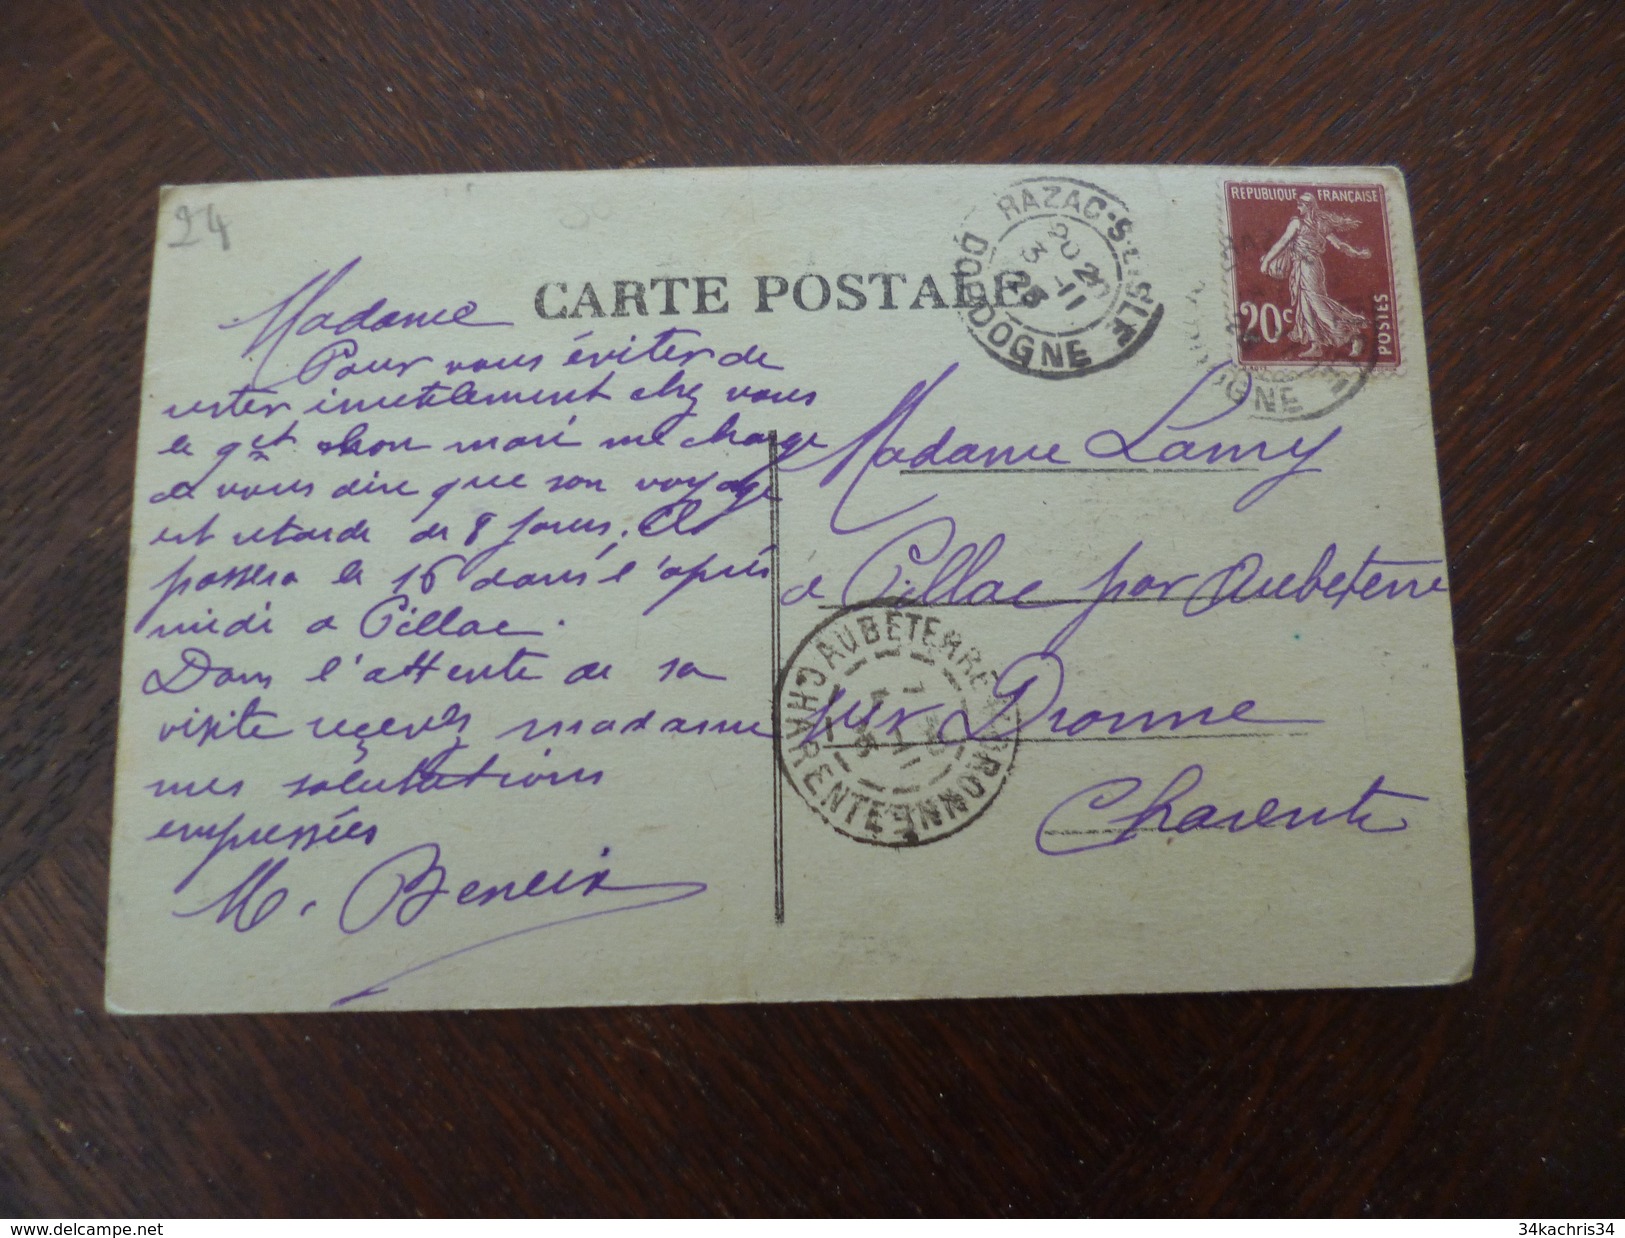 24
CARTE POSTALE
Madame
Pour vous éviter de
rester inutilement chez vous
le mon mari me charge
de vous dire que son voyage
est retarde de 8 jours. Il
passera le 16 dans l'après
midi a Pillac.
Dans l'attente de sa
visite recevez madame
mes salutations
empressées
M. Beneix
RAZAC-S-L'ISLE
DORDOGNE
REPUBLIQUE FRANÇAISE
20c
POSTES
Madame Lamy
à Pillac par Aubeterre
sur Dronne
Charente
AUBETERRE-S-DRONNE
CHARENTE
www.delcampe.net
34kachris34